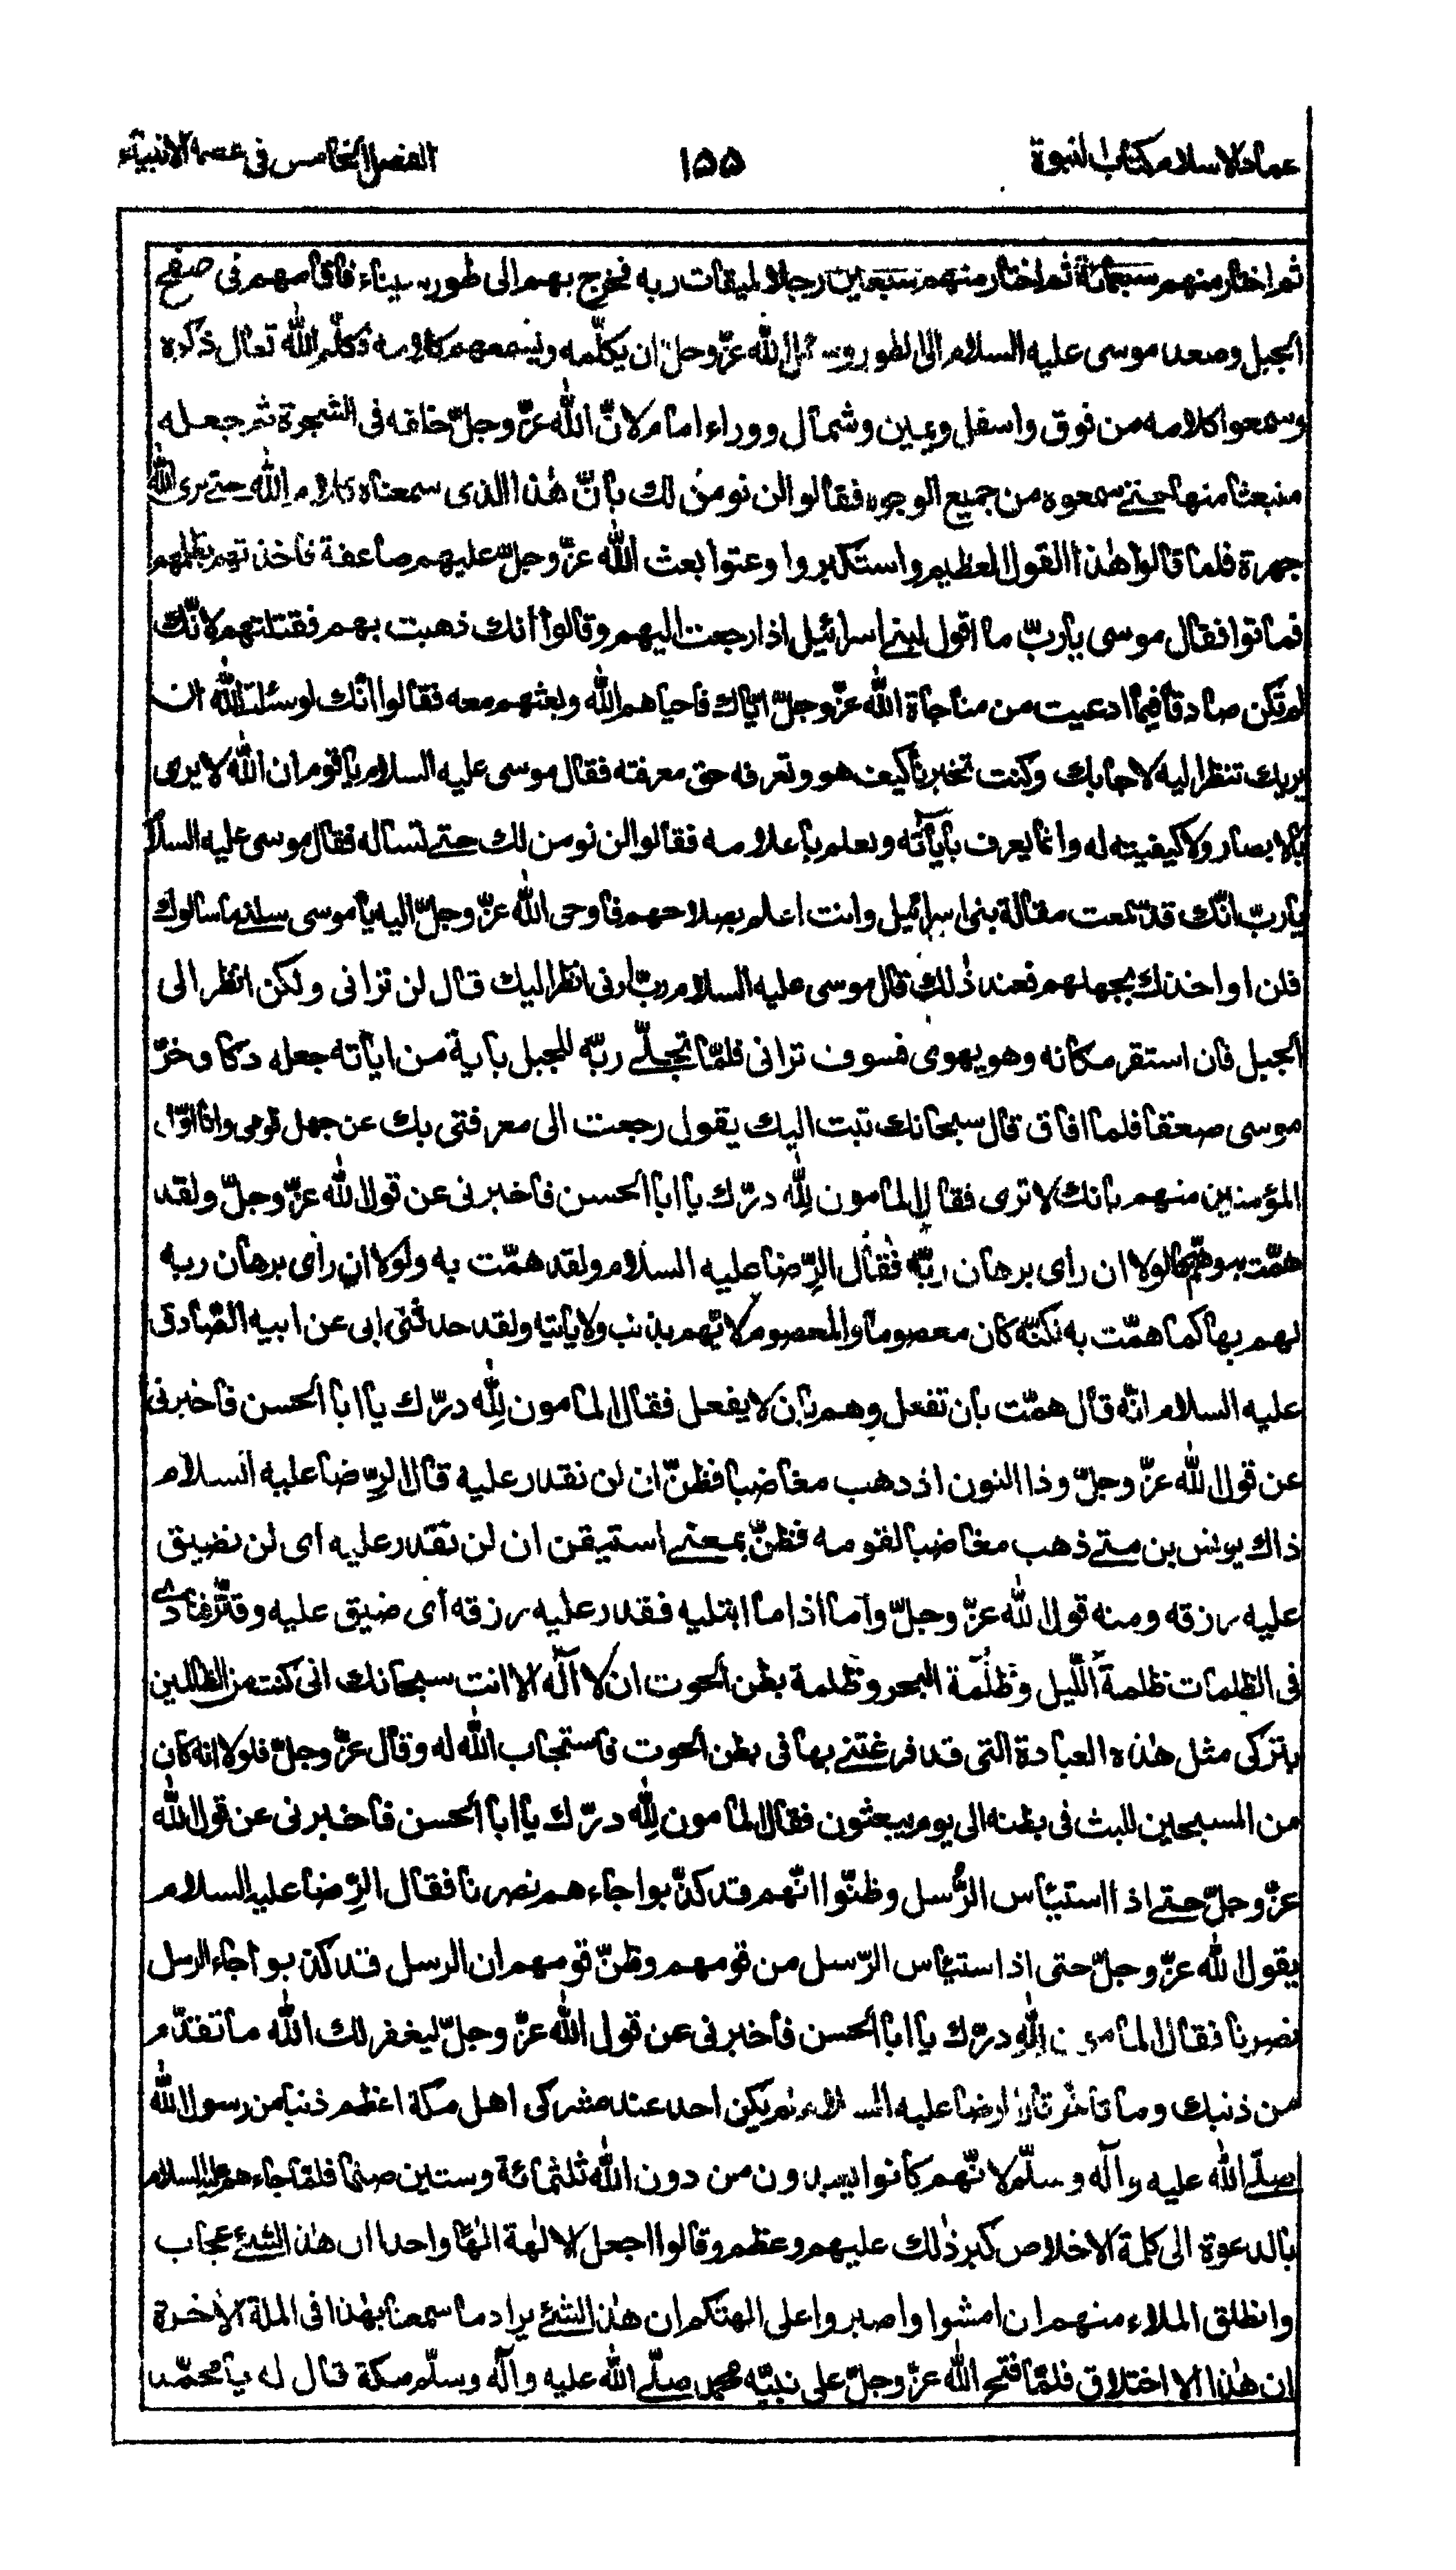 عماد الاسلام كتاب النبوة
١٥٥
الفصل الخامس فى عصمة الانبياء
ثم اختار منهم سبعمائة ثم اختار منهم سبعين رجلا لميقات ربه فخرج بهم الى طور سيناء فاقامهم فى صفح
الجبل وصعد موسى عليه السلام الى الطور وسال الله عزّ وجلّ ان يكلّمه ويسمعهم كلامه فكلّم الله تعالى ذكره
وسمعوا كلامه من فوق واسفل ويمين وشمال ووراء امام لانّ الله عزّ وجلّ خلقه فى الشجرة ثم جعله
منبعثا منها حتى سمعوه من جميع الوجوه فقالوا لن نومن لك بانّ هٰذا الذى سمعناه كلام الله حتى نرى الله
جهرة فلما قالوا هٰذا القول العظيم واستكبروا وعتوا بعث الله عزّ وجلّ عليهم صاعقة فاخذتهم بظلمهم
فماتوا فقال موسى يا ربّ ما اقول لبنى اسرائيل اذا رجعت اليهم وقالوا انك ذهبت بهم فقتلتهم لانّك
لم تكن صادقا فيما ادعيت من مناجاة الله عزّ وجلّ ايّاك فاحياهم الله وبعثهم معه فقالوا انّك لو سئلت الله ان
يريك تنظر اليه لاجابك وكنت تخبرنا كيف هو ونعرفه حق معرفته فقال موسى عليه السلام يا قوم ان الله لا يرى
بالابصار ولا كيفيته له وانما يعرف بآياته ويعلم باعلامه فقالوا لن نومن لك حتى تساله فقال موسى عليه السلا
يا ربّ انّك قد سمعت مقالة بنى اسرائيل وانت اعلم بصلاحهم فاوحى الله عزّ وجلّ اليه يا موسى سلنى ما سالوك
فلن اواخذك بجهلهم فعند ذٰلك قال موسى عليه السلام ربّ ارنى انظر اليك قال لن ترانى ولكن انظر الى
الجبل فان استقر مكانه وهو يهوى فسوف ترانى فلمّا تجلّى ربّه للجبل باية من اياته جعله دكا وخرّ
موسى صعقا فلما افاق قال سبحانك تبت اليك يقول رجعت الى معرفتى بك عن جهل قومى وانا اوّل
المؤمنين منهم بانك لا ترى فقال المامون لله درّك يا ابا الحسن فاخبرنى عن قول الله عزّ وجلّ ولقد
همّت به وهمّ بها لولا ان راى برهان ربّه فقال الرّضا عليه السلام ولقد همّت به ولولا ان راى برهان ربه
لهم بها كما همّت به لكنّه كان معصوما والمعصوم لا يهم بذنب ولا ياتيه ولقد حدثنى ابى عن ابيه الصّادق
عليه السلام انّه قال همّت بان تفعل وهم بان لا يفعل فقال المامون لله درّك يا ابا الحسن فاخبرنى
عن قول الله عزّ وجلّ وذا النون اذ ذهب مغاضبا فظنّ ان لن نقدر عليه قال الرّضا عليه السلام
ذاك يونس بن متى ذهب مغاضبا لقومه فظنّ بمعنى استيقن ان لن نقدر عليه اى لن نضيق
عليه رزقه ومنه قول الله عزّ وجلّ واما اذا ما ابتليه فقدر عليه رزقه اى ضيق عليه وقتّر فنادى
فى الظلمات ظلمة اللّيل وظلمة البحر وظلمة بطن الحوت ان لا آله الا انت سبحانك انى كنت من الظالمين
بتركى مثل هٰذه العبادة التى قد فرغتنى بها فى بطن الحوت فاستجاب الله له وقال عزّ وجلّ فلولا انه كان
من المسبحين للبث فى بطنه الى يوم يبعثون فقال المامون لله درّك يا ابا الحسن فاخبرنى عن قول الله
عزّ وجلّ حتى اذا استيأس الرّسل وظنّوا انّهم قد كذّبوا جاءهم نصرنا فقال الرّضا عليه السلام
يقول الله عزّ وجلّ حتى اذا استيأس الرّسل من قومهم وظنّ قومهم ان الرسل قد كذبوا جاء الرسل
نصرنا فقال المامون لله درّك يا ابا الحسن فاخبرنى عن قول الله عزّ وجلّ ليغفر لك الله ما تقدّم
من ذنبك وما تاخّر قال الرضا عليه السلام لم يكن احد عند مشركى اهل مكة اعظم ذنبا من رسول الله
صلّى الله عليه وآله وسلّم لانّهم كانوا يعبدون من دون الله ثلثمائة وستين صنما فلمّا جاءهم عليه السلام
بالدعوة الى كلمة الاخلاص كبر ذٰلك عليهم وعظم وقالوا اجعل الالٰهة الٰها واحدا ان هٰذا لشئ عجاب
وانطلق الملاء منهم ان امشوا واصبروا على الهتكم ان هٰذا لشئ يراد ما سمعنا بهٰذا فى الملة الاخرة
ان هٰذا الا اختلاق فلمّا فتح الله عزّ وجلّ على نبيّه محمد صلّى الله عليه وآله وسلّم مكة قال له يا محمّد